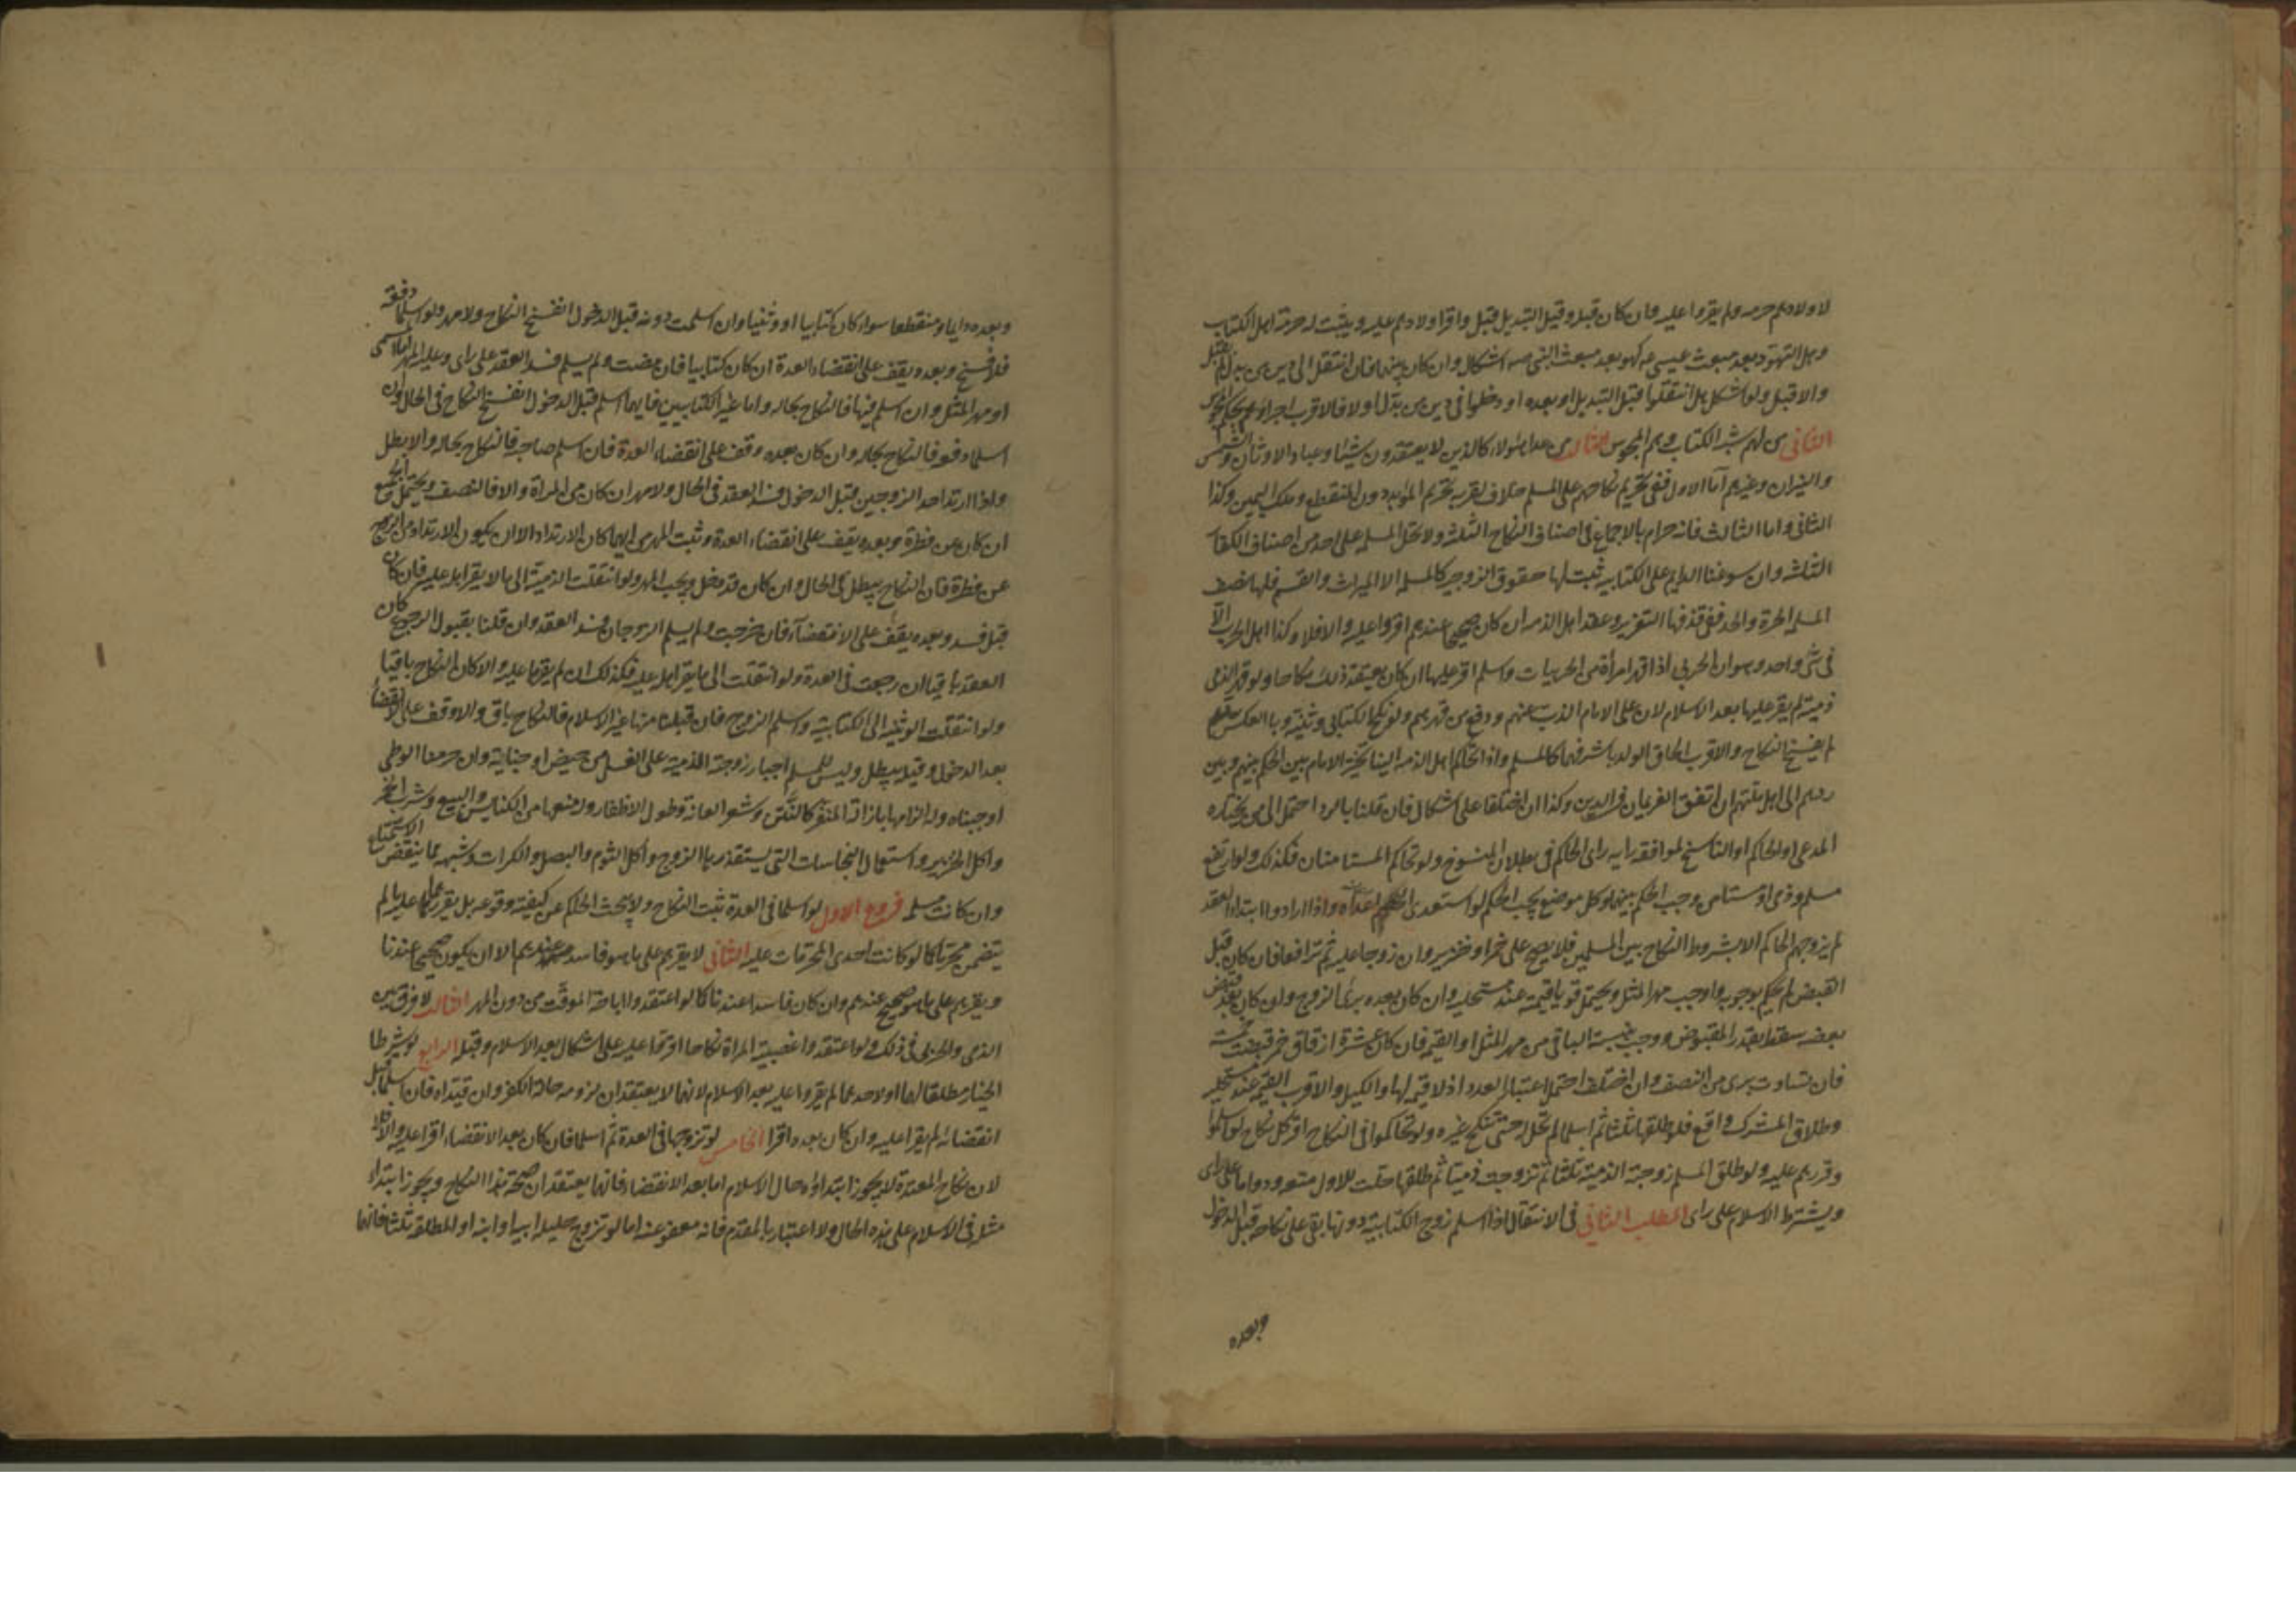 لاولادهم حرمه ولم يقروا عليه وان كان قبله وقبل التبديل قبل واقر اولادهم عليه ويثبت له حرمة اهل الكتاب
وهل التهود بعد مبعث عيسى ع كهو بعد مبعث النبي صه اشكال وان كان بينهما فان انتقل الى دين من بدل لم يقبل
والا قبل ولو اشكل هل انتقلوا قبل التبديل او بعده او دخلوا في دين من بدل او لا فالاقرب اجراؤهم بحكم المجوس
الثاني من لهم شبه الكتاب وهم المجوس الثالث من عدا هؤلاء كالذين لا يعتقدون شيئا وعباد الاوثان والشمس
والنيران وغيرهم اما الاول ففي تحريم نكاحهم على المسلم خلاف اقربه تحريم المؤبد دون المنقطع وملك اليمين وكذا
الثاني واما الثالث فانه حرام بالاجماع في اصناف النكاح الثلثه ولا تحل المسلمه على احد من اصناف الكفار
الثلثه وان سوغنا الدايم على الكتابيه ثبت لها حقوق الزوجيه كالمسلمه الا الميراث والقسم فلها نصف
المسلمه الحرة والحد ففي قذفها التعزير وعقد اهل الذمه ان كان صحيحا عندهم اقروا عليه والا فلا وكذا اهل الحرب الا
في شئ واحد وهو ان الحربي اذا قهر امرأة من الحربيات واسلم اقر عليها ان كان يعتقد ذلك نكاحا ولو قهر الذمي
ذمية لم يقر عليها بعد الاسلام لان على الامام الذب عنهم ودفع من قهرهم ولو نكح الكتابي وثنية وبالعكس
لم يفسخ النكاح والاقرب الحاق الولد باشرفهما كالمسلم واذا تحاكم اهل الذمه الينا تخير الامام بين الحكم بينهم وبين
ردهم الى اهل ملتهم ان اتفق الغريمان في الدين وكذا ان اختلفا على اشكال فان قلنا بالرد احتمل الى من يختاره
المدعي او الحاكم او الناسخ لموافقة رايه راى الحاكم في بطلان المنسوخ ولو تحاكم المستامنان فكذلك ولو ارتفع
مسلم وذمي او مستامن وجب الحكم بينهما وكل موضع يجب الحكم لو استعدى الخصم اعداه واذا ارادوا ابتداء العقد
لم يزوجهم الحاكم الا بشروط النكاح بين المسلمين فلا يصح على خمر او خنزير وان زوجا عليه ثم ترافعا فان كان قبل
القبض لم يحكم بوجوبه واوجب مهر المثل ويحتمل قويا قيمته عند مستحليه وان كان بعده برئ الزوج وان كان بعد قبض
بعضه سقط بقدر المقبوض ووجب بنسبة الباقي من مهر المثل او القيمه فان كان عشرة ازقاق خمر قبضت خمسة
فان تساوت برئ من النصف وان اختلف احتمل اعتبار العدد اذ لا قيمة لها والكيل والاقرب القيمه عند مستحليه
وطلاق المشرك واقع فلو طلقها ثلثا ثم اسلما لم تحل له حتى تنكح غيره ولو تحاكموا في النكاح اقر كل نكاح لو اسلموا
وقررهم عليه ولو طلق المسلم زوجته الذمية ثلثا ثم تزوجت ذميا ثم طلقها حلت للاول متعه ودواما على راى
ويشترط الاسلام على راى المطلب الثاني في الانتقال اذا اسلم زوج الكتابية دونها بقى على نكاحه قبل الدخول
وبعده
وبعده دايما ومنقطعا سواء كان كتابيا او وثنيا وان اسلمت دونه قبل الدخول انفسخ النكاح ولا مهر ولو اسلما دفعة
فلا فسخ وبعده يقف على انقضاء العدة ان كان كتابيا فان مضت ولم يسلم فسد العقد على راى وعليه المهر المسمى
او مهر المثل وان اسلم فيها فالنكاح بحاله واما غير الكتابيين فايهما اسلم قبل الدخول انفسخ النكاح في الحال ولو
اسلما دفعة فالنكاح بحاله وان كان بعده وقف على انقضاء العدة فان اسلم صاحبه فالنكاح بحاله والا بطل
واذا ارتد احد الزوجين قبل الدخول فسد العقد في الحال ولا مهر ان كان من المرأة والا فالنصف ويحتمل الجميع
ان كان عن فطرة وبعده يقف على انقضاء العدة وثبت المهر من ايهما كان الارتداد الا ان يكون الارتداد من الزوج
عن فطرة فان النكاح يبطل في الحال وان كان قد دخل ويجب المهر ولو انتقلت الذمية الى ما لا يقر اهله عليه فان كان
قبل فسد وبعده يقف على الانقضاء فان خرجت ولم يسلم الزوجان فسد العقد وان قلنا بقبول الرجوع كان
العقد باقيا ان رجعت في العدة ولو انتقلت الى ما يقر اهله عليه فكذلك ان لم يقرها عليه والا كان النكاح باقيا
ولو انتقلت الوثنيه الى الكتابية واسلم الزوج فان قبلنا منها غير الاسلام فالنكاح باق والا وقف على الانقضاء
بعد الدخول وقبله يبطل وليس للمسلم اجبار زوجته الذميه على الغسل من حيض او جنابة وان حرمنا الوطى
اوجبناه وله الزامها بازالة المنفر كالنتن وشعر العانة وطول الاظفار وله منعها من الكنايس والبيع وشرب الخمر
واكل الخنزير واستعمال النجاسات التي يستقذر بها الزوج واكل الثوم والبصل والكراث وشبهه مما ينقض الاستمتاع
وان كانت مسلمه فروع الاول لو اسلما في العدة ثبت النكاح ولا يبحث الحاكم عن كيفية وقوعه بل يقررهما عليه ما لم
يتضمن محرما كما لو كانت احدى المحرمات عليه الثاني لا يقرهم على ما هو فاسد عندهم الا ان يكون صحيحا عندنا
ويقرهم على ما هو صحيح عندهم وان كان فاسدا عندنا كما لو اعتقدوا اباحة الموقت من دون المهر الثالث لا فرق بين
الذمي والحربي في ذلك ولو اعتقدوا غصبية المراة نكاحا اقرها عليه على اشكال بعد الاسلام وقبله الرابع لو شرطا
الخيار مطلقا لهما او لاحدهما لم يقروا عليه بعد الاسلام لانهما لا يعتقدان لزومه حالة الكفر وان قيداه فان اسلما قبل
انقضائه لم يقرا عليه وان كان بعده اقرا الخامس لو تزوجها في العدة ثم اسلما فان كان بعد الانقضاء اقرا عليه والا فلا
لان نكاح المعتدة لا يجوز ابتداؤه حال الاسلام اما بعد الانقضاء فانهما يعتقدان صحة هذا النكاح ويجوز ابتداء
مثله في الاسلام على هذه الحال ولا اعتبار بالمقدم فانه معفو عنه اما لو تزوج حليلة ابيه او ابنه او المطلقة ثلثا فانهما